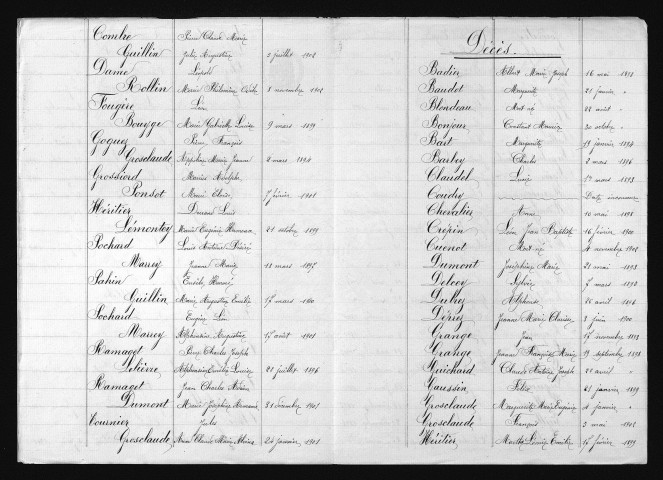 Comte Pierre Claude Marie
Guillin Julie Augustine 2 juillet 1902
Dame Léopold
Rollin Marie Philomène 8 novembre 1902
Fougère Léon
Bouyge Marie Gabrielle Louise 9 mars 1899
Goguey François
Grosclaude Marie Jeanne 2 mars 1894
Grossiord Marius Adolphe
Ponsot Marie Eloïse 7 février 1901
Héritier Louis
Lémontey Marie Eugénie 21 octobre 1899
Pochard Louis Désiré
Marrey Jeanne Marie 12 mars 1895
Sahin Emile Henri
Guillin Marie Augustine Emilie 17 mars 1900
Pochard Eugène
Marrey Alphonsine Augustine 17 août 1901
Ramaget Charles Joseph
Lelièvre Alphonsine Louise 22 juillet 1896
Ramaget Jean Charles
Dumont Marie Joséphine 31 décembre 1901
Tournier Jules
Grosclaude Marie 24 janvier 1901
Décès.
Badin Albert Marie Joseph 16 mai 1893
Baudot Marguerite 21 janvier "
Blondeau Mort né 22 août "
Bonjour Constant Maurice 20 octobre "
Bart Marguerite 13 janvier 1894
Barbey Charles 2 mars 1896
Claudel Lucie 1er mars 1893
Coudry Date inconnue
Chevalier Anne 10 mai 1898
Crépin Jean Baptiste 16 février 1900
Cuenot Mort né 4 novembre 1902
Dumont Joséphine Marie 21 mai 1893
Delcey Sylvie 7 mars 1893
Duby Alphonse 25 avril 1896
Dériez Jeanne Marie 3 juin 1900
Grange Jean 17 novembre 1893
Grange Jeanne Françoise Marie 19 septembre 1898
Guichard Claude Antoine Joseph 21 avril "
Gaussin Félix 21 janvier 1899
Grosclaude Marguerite Marie Eugénie 4 janvier "
Grosclaude François 3 mai 1902
Héritier Marthe Louise Emilie 15 février 1899